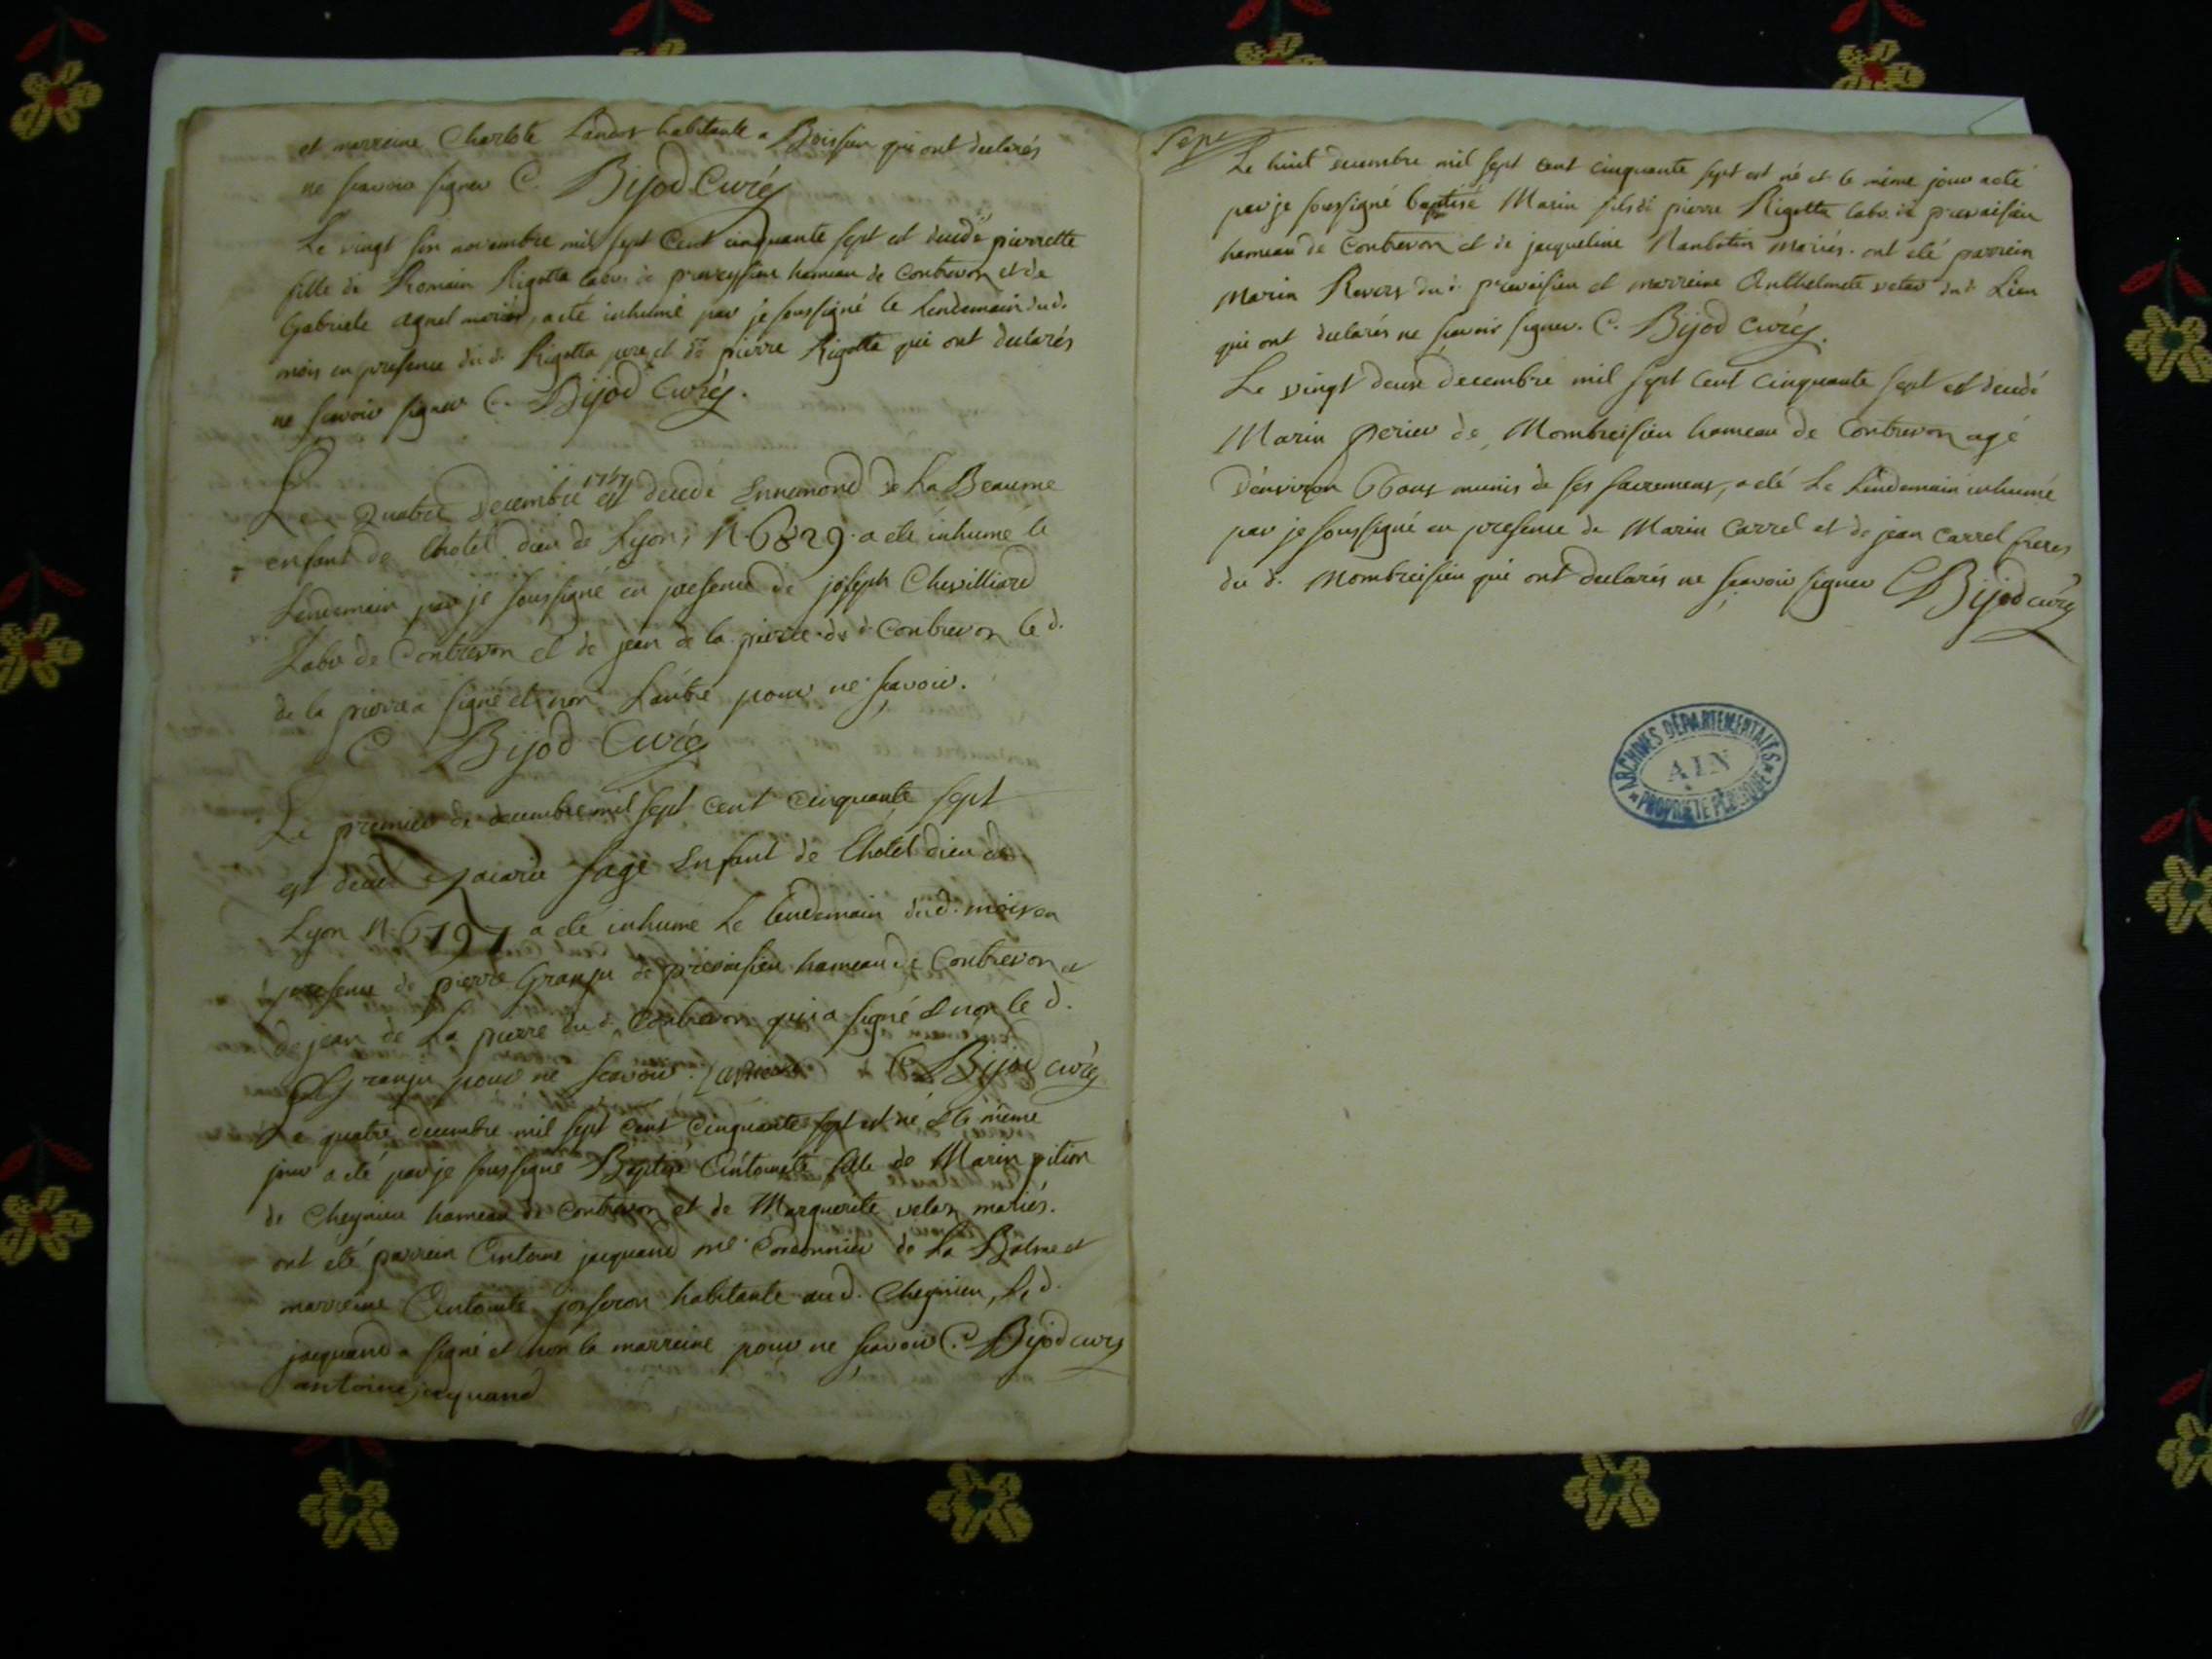 et marreine Charlote Landos habitante a Boissieu qui ont declarés
ne scavoir signer C. Bijod Curéz
Le vingt six novembre mil sept Cent cinquante sept est decedé pierrette
fille de Romain Rigotta labr. de preveyssieu hameau de Contrevon et de
Gabriele agnel mariés, a eté inhumé par je soussigné le Lendemain dud.
mois en presence dud. Rigotta pere et de pierre Rigotta qui ont declarés
ne scavoir signer C. Bijod Curéz.
Le quatre decembre 1757 est decedé Ennemond de La Beaume
enfant de lhotel dieu de Lyon, N. 6829. a eté inhumé le
Lendemain par je soussigné en presence de joseph Chevilliard
Labr de Contrevon et de jean de la pierre dud. Contrevon le d.
de la pierre a signé et non Lautre pour ne scavoir.
C Bijod Curéz
Le premier de decembre mil sept cent cinquante sept
est decedé sage Enfant de lhotel dieu de
Lyon N. 6797 a eté inhumé Le lendemain dud. mois en
presence de pierre Granju de prevoisieu hameau de Contrevon et
de jean de La pierre dud. Contrevon qui a signé et non le d.
Granju pour ne scavoir. C Bijod curéz
Le quatre decembre mil sept cent cinquante sept est né et le même
jour a eté par je soussigné Baptisé Antoinete fille de Marin pition
de Cheynieu hameau de Contrevon et de Marguerite velas mariés.
ont eté parrein Antoine jacquand me. Cordonnier de La Balme et
marreine Antoinete josseron habitante aud. Cheynieu, Le d.
jacquand a signé et non la marreine pour ne scavoir C. Bijod curéz
antoine jacquand
Sept
Le huit decembre mil sept cent cinquante sept est né et le même jour a eté
par je soussigné baptisé Marin fils de pierre Rigotta labr. de prevoisieu
hameau de Contrevon et de jacqueline mariés. ont eté parrein
Marin Revers dud. prevoisieu et marreine Anthelmete dud. Lieu
qui ont declarés ne scavoir signer. C. Bijod curéz.
Le vingt deux decembre mil sept cent cinquante sept est decedé
Marin perier de Mombreisieu hameau de Contrevon agé
d'environ 66 ans munis de ses sacremens, a eté Le Lendemain inhumé
par je soussigné en presence de Marin Carrel et de jean Carrel freres
du d. Mombreisieu qui ont declarés ne scavoir signer C Bijod curéz
ARCHIVES DÉPARTEMENTALES
AIN
PROPRIÉTÉ PUBLIQUE